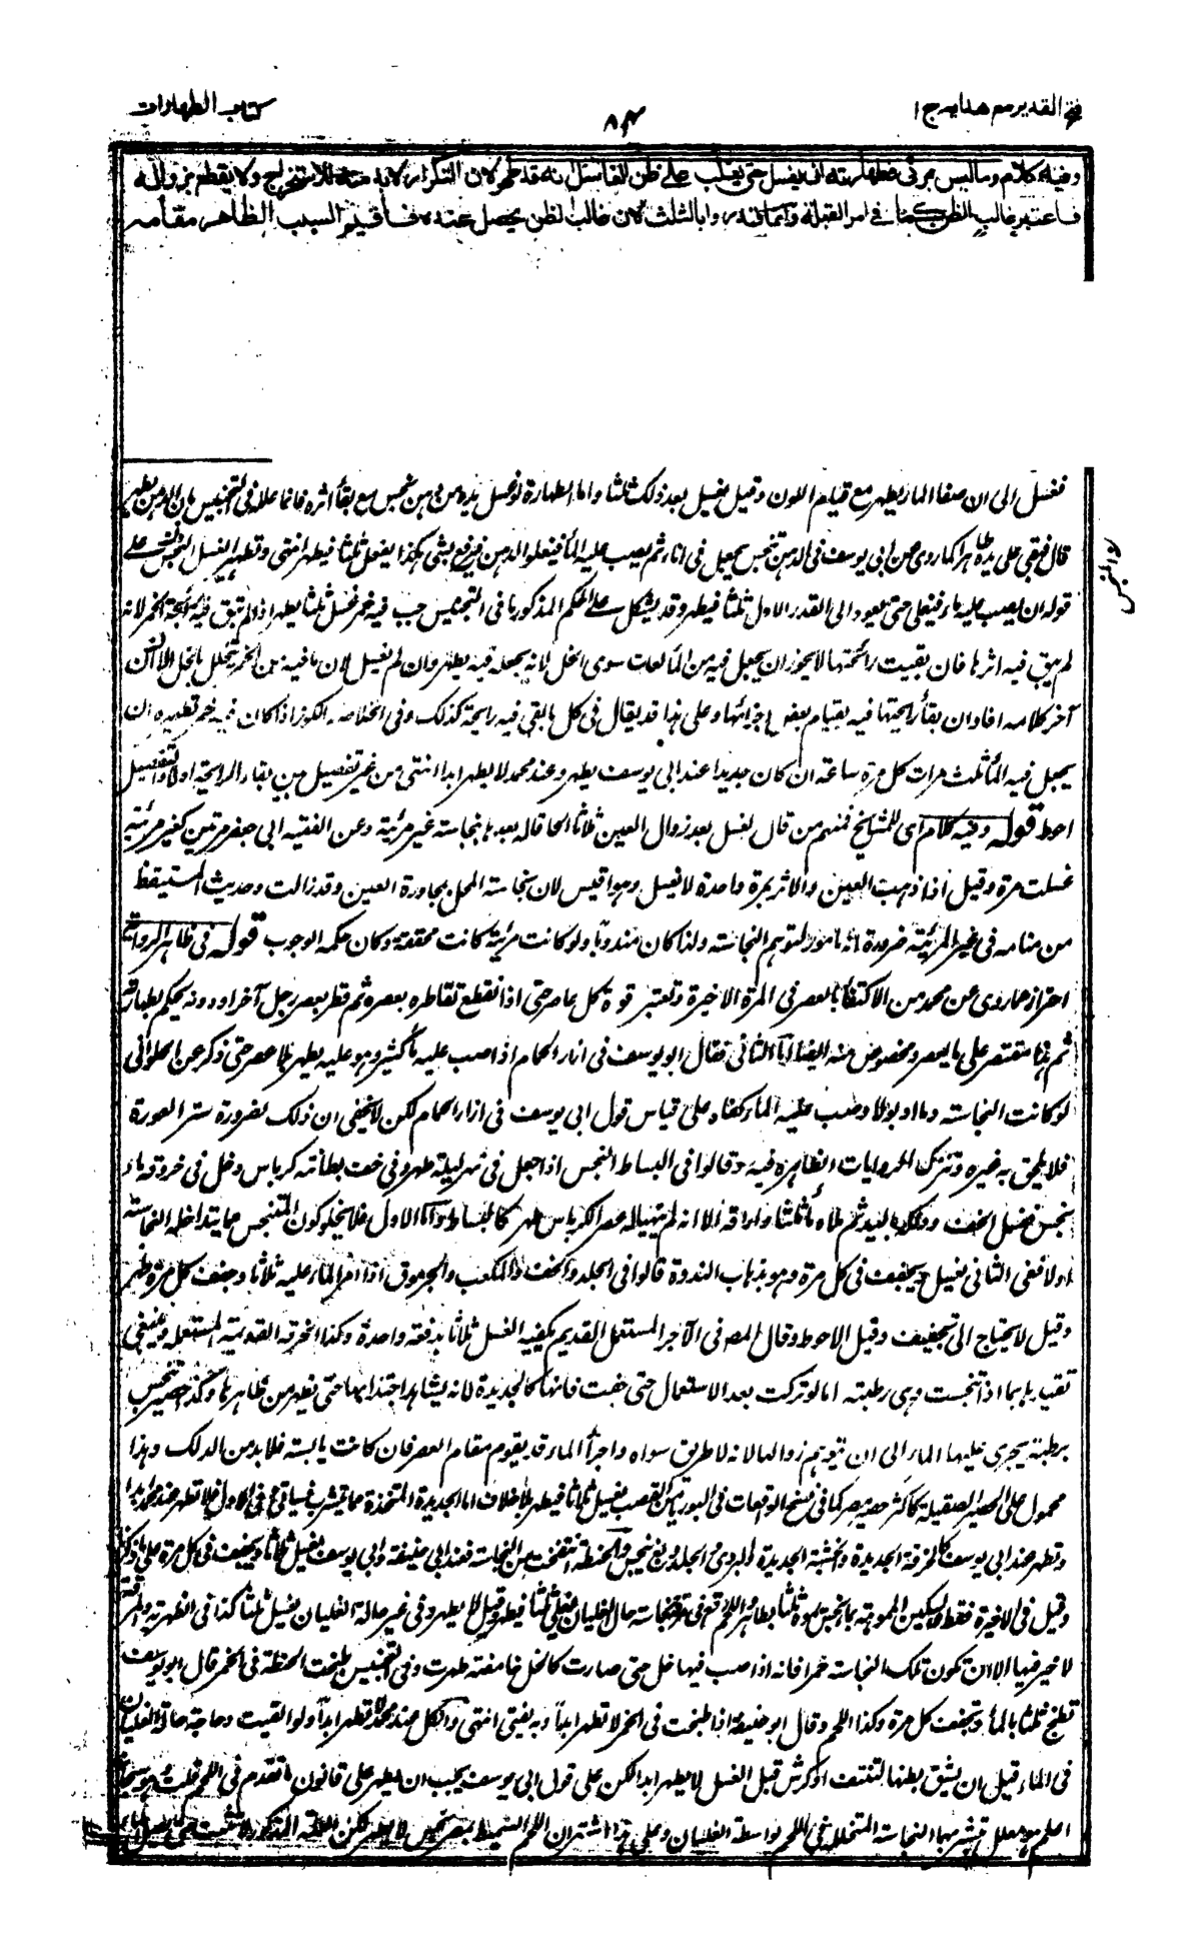 فتح القدير مع هدايه ج ١
٨٣
كتاب الطهارات
وفيه كلام وما ليس بمرئى فطهارته ان يغسل حتى يغلب على ظن الغاسل انه قد طهر لان التكرار لا بد منه للاستخراج ولا يقطع بزواله
فاعتبر غالب الظن كما فى امر القبلة وانما قدروا بالثلث لان غالب الظن يحصل عنده فاقيم السبب الظاهر مقامه
فغسل الى ان صفا الماء يطهر مع قيام اللون وقيل يغسل بعد ذلك ثلثا واما الطهارة لو غسل يده من دهن نجس مع بقاء اثره فانما علله فى التجنيس بان الدهن يطهر
قال فبقى على يده طاهرا كما روى عن ابى يوسف فى الدهن تنجس يجعل فى اناء ثم يصب عليه الماء فيعلو الدهن فيرفع بشئ هكذا يفعل ثلثا فيطهر انتهى وتطهير العسل النجس على
قوله ان يصب عليه ماء فيغلى حتى يعود الى القدر الاول ثلثا فيطهر وقد يشكل على الحكم المذكور ما فى التجنيس حب فيه خمر غسل ثلثا يطهر اذا لم تبق فيه رائحة الخمر لانه
لم يبق فيه اثرها فان بقيت رائحتها لا يجوز ان يجعل فيه من المائعات سوى الخل لانه بجعله فيه يطهر وان لم يغسل لان ما فيه من الخمر يتخلل بالخل الا ان
آخر كلامه افاد ان بقاء رائحتها فيه بقيام بعض اجزائها وعلى هذا قد يقال فى كل ما بقى فيه رائحة كذلك وفى الخلاصة الكوز اذا كان فيه خمر تطهيره ان
يجعل فيه الماء ثلث مرات كل مرة ساعة ان كان جديدا عند ابى يوسف يطهر وعند محمد لا يطهر ابدا انتهى من غير تفصيل بين بقاء الرائحة اولا والتفصيل
احوط قوله وفيه كلام اى للمشايخ فمنهم من قال يغسل بعد زوال العين ثلاثا الحاقا له بعدها بنجاسة غير مرئية وعن الفقيه ابى جعفر مرتين كغير مرئية
غسلت مرة وقيل اذا ذهبت العين والاثر بمرة واحدة لا يغسل وهو اقيس لان نجاسة المحل بمجاورة العين وقد زالت وحديث المستيقظ
من منامه فى غير المرئية ضرورة انه مامور لتوهم النجاسة ولذا كان مندوبا ولو كانت مرئية كانت محققة وكان حكمه الوجوب قوله فى ظاهر الرواية
احتراز عما روى عن محمد من الاكتفاء بالعصر فى المرة الاخيرة وتعتبر قوة كل عاصر حتى اذا انقطع تقاطره بعصره ثم قطر بعصر رجل آخر او دونه يحكم بطهارته
ثم هذا مقتصر على ما يعصر ومخصوص منه ايضا اما الثانى فقال ابو يوسف فى ازار الحمام اذا صب عليه ماء كثير وهو عليه يطهر بلا عصر حتى ذكر عن الحلوانى
لو كانت النجاسة دما او بولا وصب عليه الماء كفاه على قياس قول ابى يوسف فى ازار الحمام لكن لا يخفى ان ذلك لضرورة ستر العورة
فلا يلحق به غيره وتترك الروايات الظاهرة فيه وقالوا فى البساط النجس اذا جعل فى نهر ليلة طهر وفى خف بطانته كرباس دخل فى خروقه ماء
نجس فغسل الخف ودلكه باليد ثم ملأه ماء ثلثا واراقه الا انه لم يتهيأ له عصر الكرباس طهر كالبساط واما الاول فلا يخلو كون المتنجس مما يتداخله النجاسة
اولا ففى الثانى يغسل ويجفف فى كل مرة وهو بذهاب الندوة قالوا فى الجلد والخف والمكعب والجرموق اذا امر الماء عليه ثلاثا وجفف كل مرة طهر
وقيل لا يحتاج الى تجفيف وقيل الاحوط وقال المص فى الآجر المستعمل القديم يكفيه الغسل ثلاثا بدفعة واحدة وكذا الخرقة القديمة المستعملة وينبغى
تقييدها بما اذا تنجست وهى رطبة اما لو تركت بعد الاستعمال حتى جفت فانها كالجديدة لانه يشاهد اجتذابها حتى يظهر من ظاهرها وكذا حصير تنجس
برطبة يجرى عليها الماء الى ان يتوهم زوالها لانه لا طريق سواه واجراء الماء قد يقوم مقام العصر فان كانت يابسة فلا بد من الدلك وهذا
محمول على الحصير الصقيلة كاكثر حصير مصر كما فى نسخ الواقعات فى البوريا من القصب يغسل ثلاثا فيطهر بلا خلاف اما الجديدة المتخذة مما يتشرب فسياتى وفى الاول فلا تطهر عند محمد ابدا
وتطهر عند ابى يوسف كالخزفة الجديدة والخشبة الجديدة والبردى والجلد دبغ بنجس والحنطة انتفخت من النجاسة فعند ابى حنيفة وابى يوسف يغسل ثلاثا ويجفف فى كل مرة على ما ذكرنا
وقيل فى الاخيرة فقط والسكين المموهة بماء نجس تموه ثلثا بطاهر واللحم وقع فى مرقه نجاسة حال الغليان يغلى ثلثا فيطهر وقيل لا يطهر وفى غير حالة الغليان يغسل ثلثا كذا فى الظهيرية والمرقة
لا خير فيها الا ان تكون تلك النجاسة خمرا فانه اذا صب فيها خل حتى صارت كالخل حامضة طهرت وفى التجنيس طبخت الحنطة فى الخمر قال ابو يوسف
تطبخ ثلثا بالماء وتجفف كل مرة وكذا اللحم وقال ابو حنيفة اذا طبخت فى الخمر لا تطهر ابدا وبه يفتى انتهى والكل عند محمد لا تطهر ابدا ولو القيت دجاجة حالة الغليان
فى الماء قبل ان يشق بطنها لتنتف او كرش قبل الغسل لا يطهر ابدا لكن على قول ابى يوسف يجب ان يطهر على قانون ما تقدم فى اللحم قلت وهو سبحانه
اعلم هو معلل بتشربها النجاسة المتخللة فى اللحم بواسطة الغليان وعلى هذا اشتهر ان اللحم السميط بمصر نجس لا يطهر لكن العلة المذكورة لا تثبت حتى يصل الماء